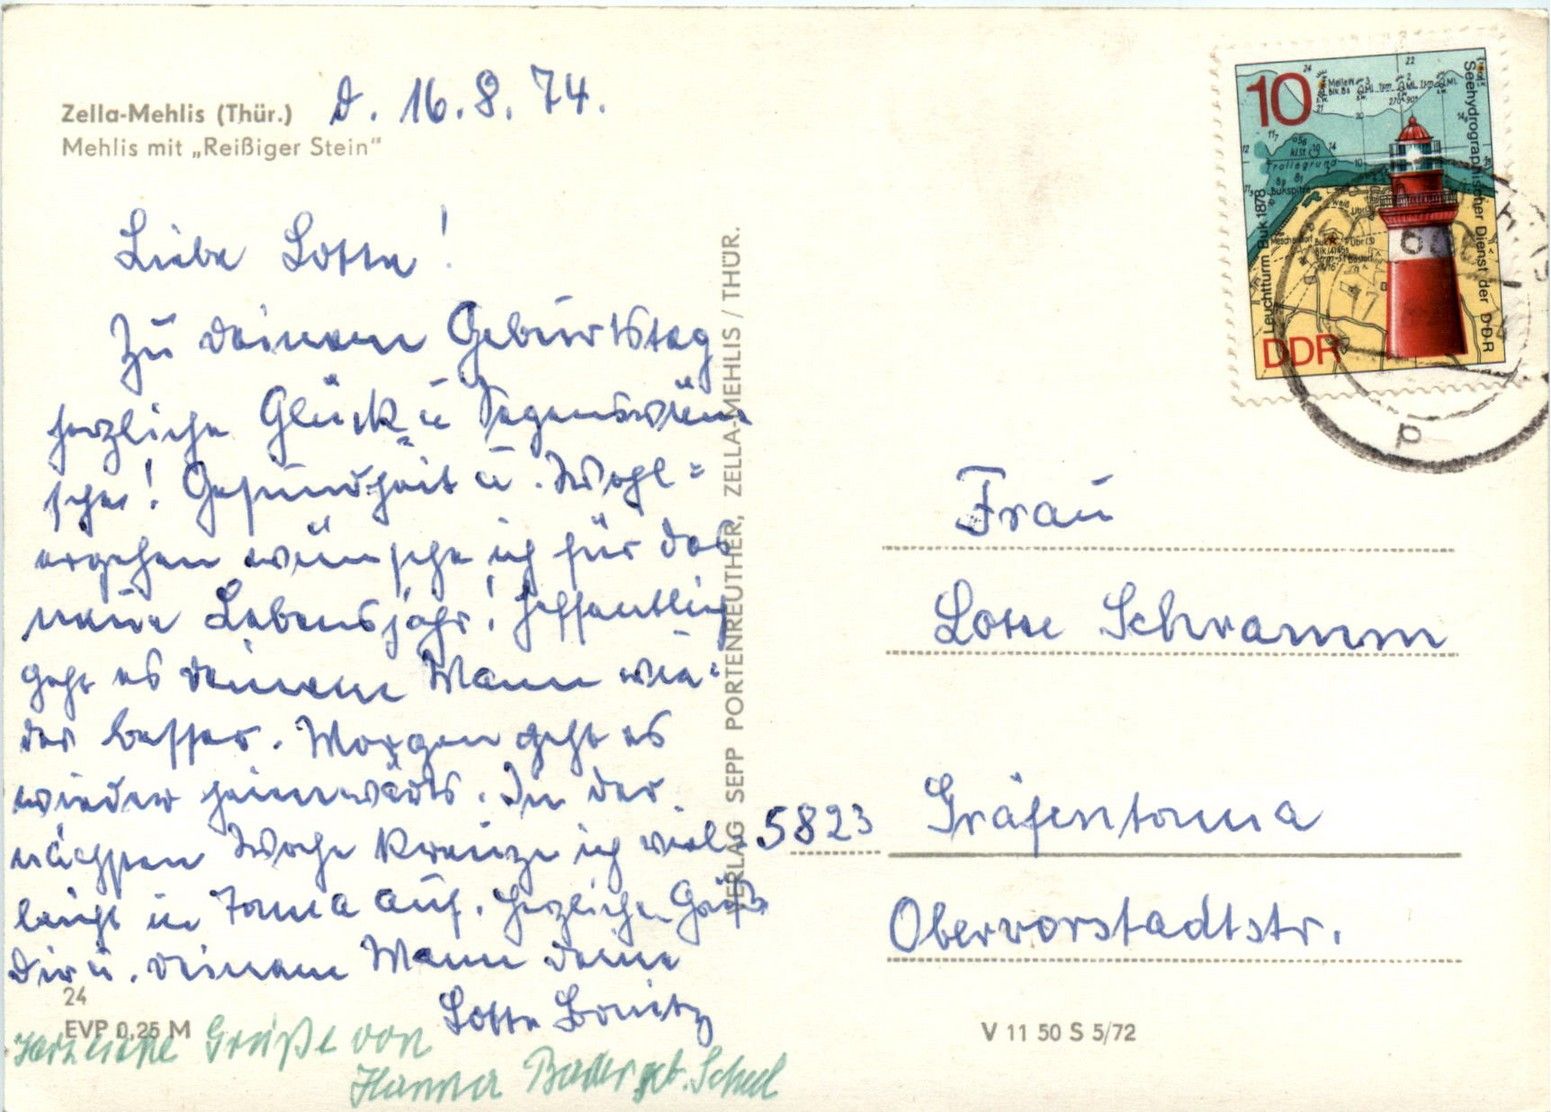 Zella-Mehlis (Thür.)
Mehlis mit „Reißiger Stein"
d. 16.8.74.
Liebe Lotte!
Zu deinem Geburtstag
herzliche Glück- u. Segenswün
sche! Gesundheit u. Wohl=
ergehen wünsche ich für das
neue Lebensjahr! Hoffentlich
geht es deinem Mann wie=
der besser. Morgen geht es
wieder heimwärts. In der
nächsten Woche kreuze ich viel-
leicht in Tonna auf. Herzliche Grüße
Dir u. deinem Mann deine
Lotte
Herzliche Grüße von
Hanna geb.
24
EVP 0,25 M
VERLAG SEPP PORTENREUTHER, ZELLA-MEHLIS / THÜR.
10
Seehydrographischer Dienst der DDR
Leuchtturm Buk 1878
DDR
Frau
Lotte Schramm
5823 Gräfentonna
Obervorstadtstr.
V 11 50 S 5/72